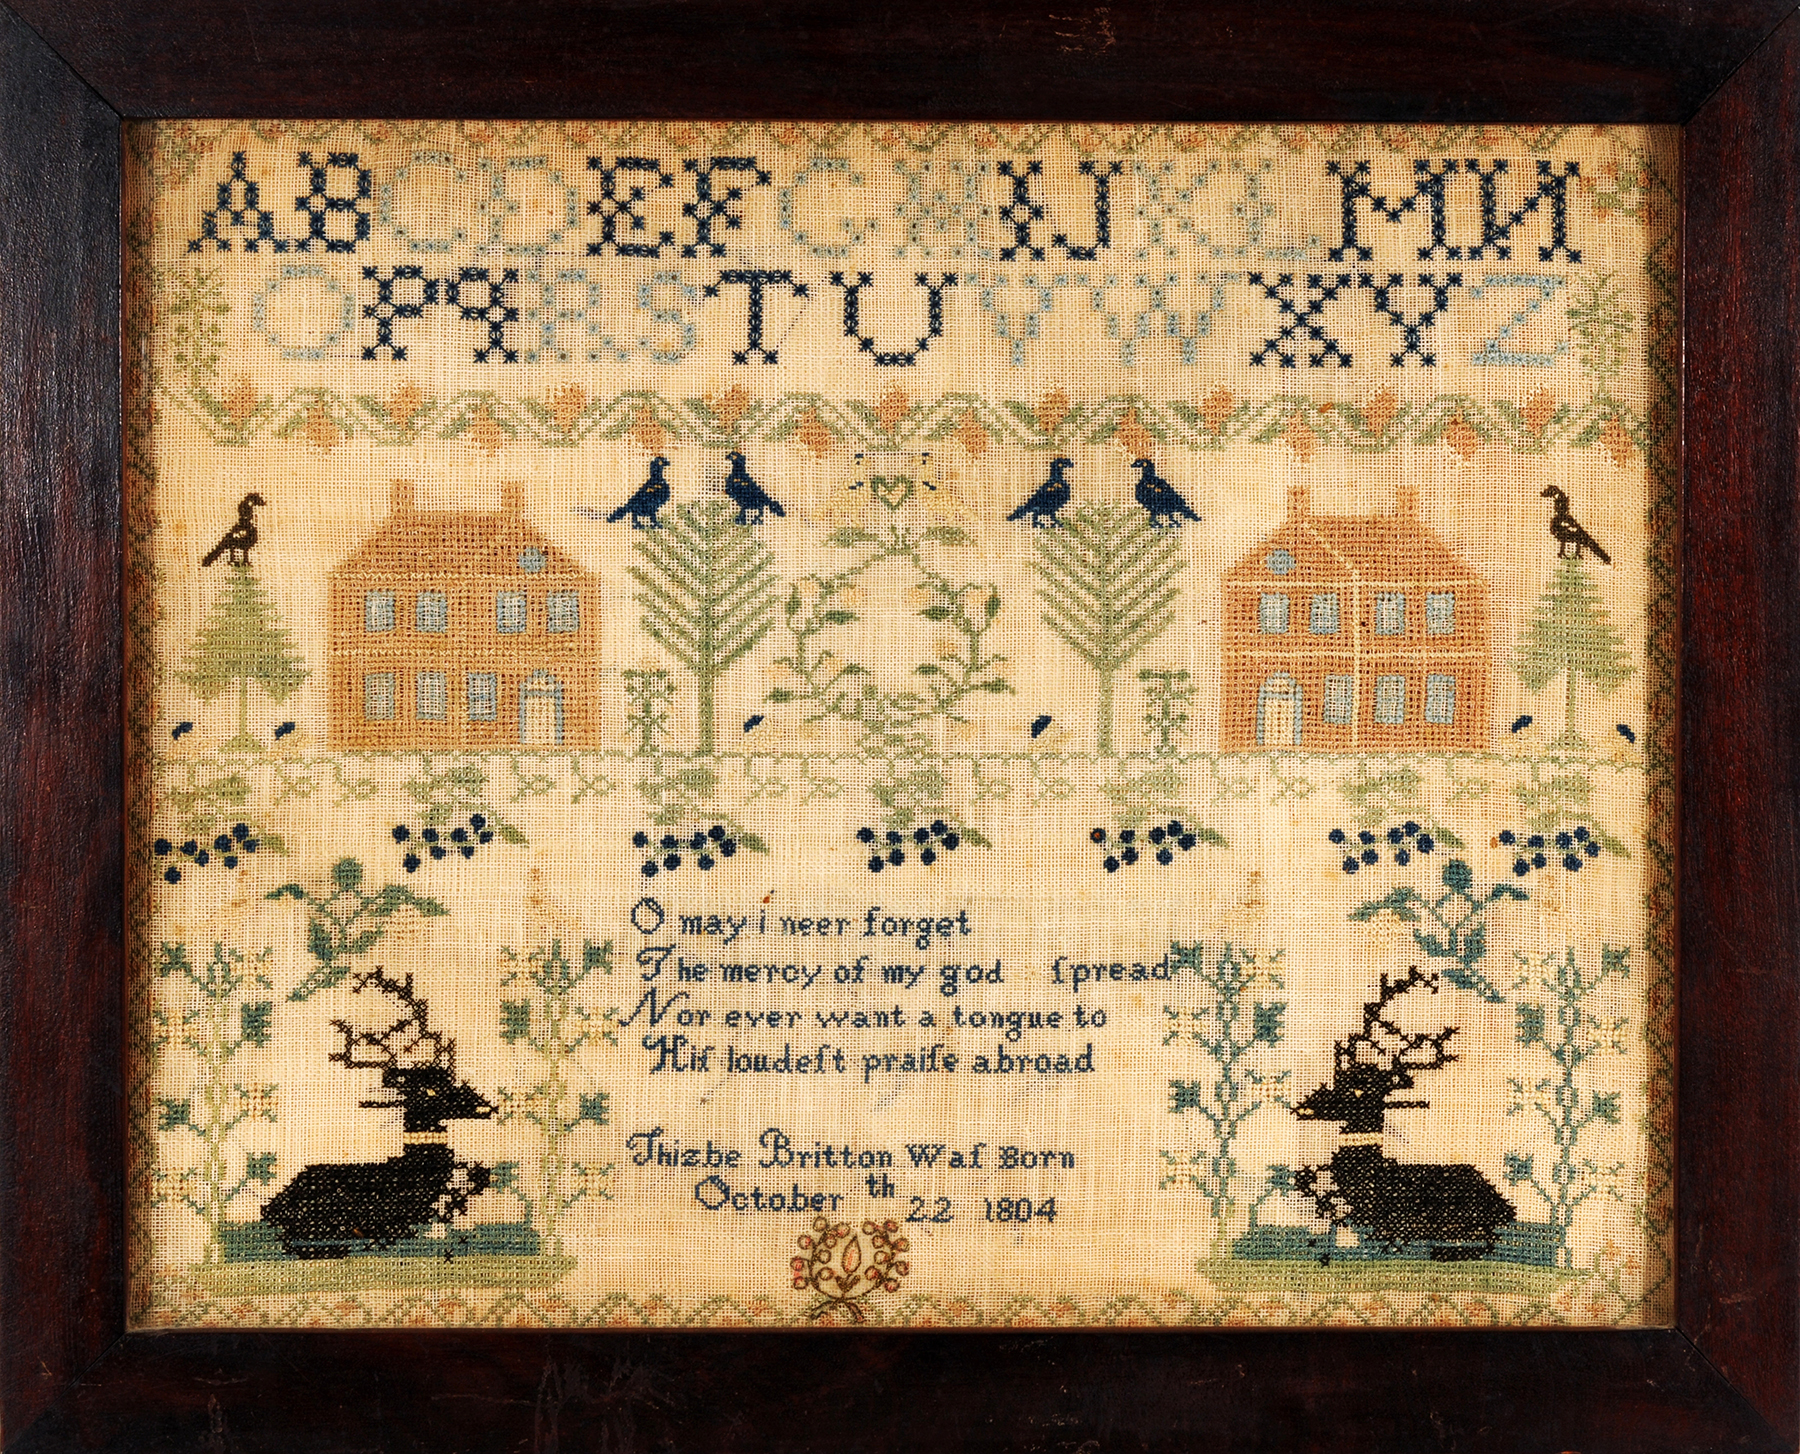 ABCDEFGHIJKLMИ
OPꟼRSTUVWXYZ
O may i neer forget
The mercy of my god ſpread
Nor ever want a tongue to
Hiſ loudeſt praiſe abroad
Thizbe Britton Waſ Born
October th 22 1804